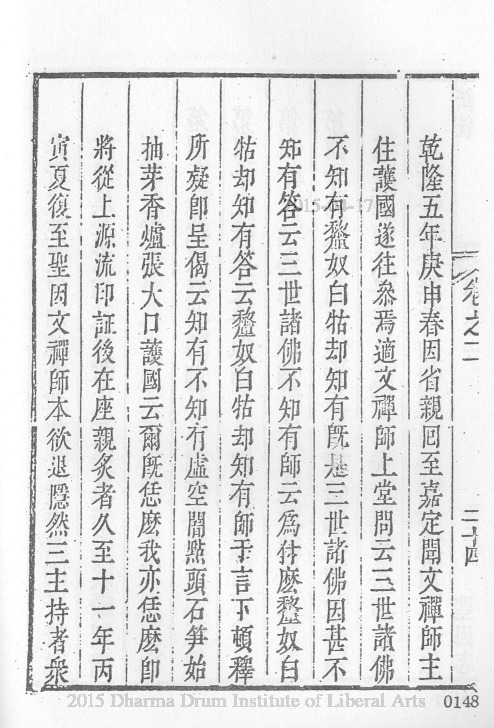 卷之二
二十四
乾隆五年庚申春因省親回至嘉定聞文禪師主
住護國遂往叅焉適文禪師上堂問云三世諸佛
不知有黧奴白牯却知有旣是三世諸佛因甚不
知有答云三世諸佛不知有師云爲什麽黧奴白
牯却知有答云黧奴白牯却知有師于言下頓釋
所凝卽呈偈云知有不知有虛空闇點頭石笋始
抽芽香爐張大口護國云爾旣恁麽我亦恁麽卽
將從上源流印証後在座親炙者久至十一年丙
寅夏復至聖因文禪師本欲退隱然三主持者衆
2015 Dharma Drum Institute of Liberal Arts
0148